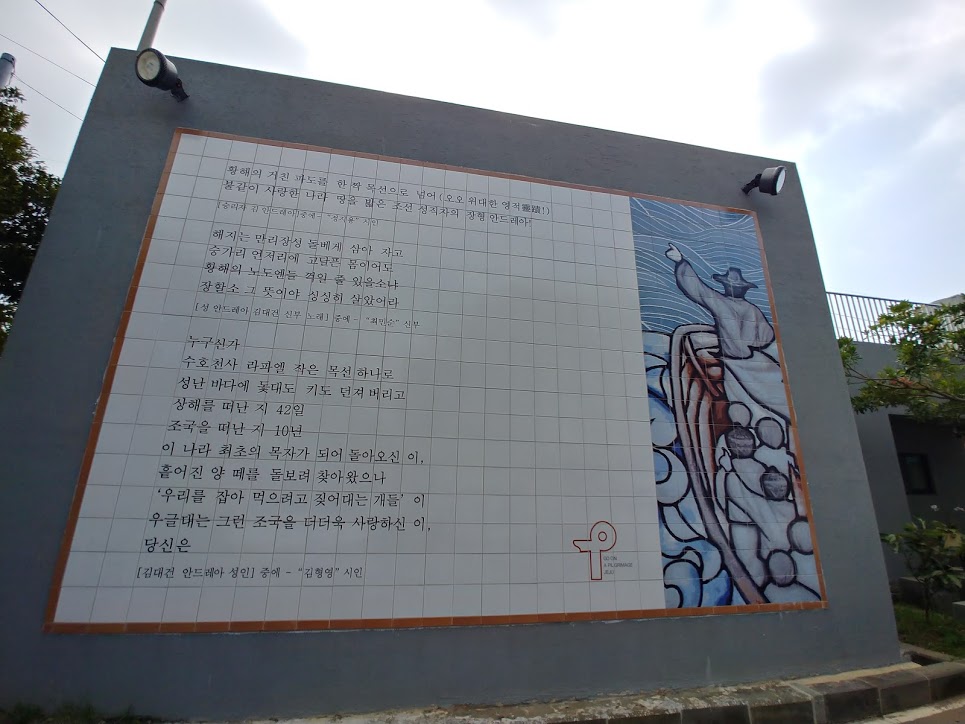 황해의 거친 파도를 한 짝 목선으로 넘어(오오 위대한 영적靈蹟!)
불같이 사랑한 나라 땅을 밟은 조선 성직자의 장형 안드레아!
[승리자 김 안드레아]중에 - "정지용" 시인
해지는 만리장성 돌베게 삼아 자고
숭가리 언저리에 고달픈 몸이어도
황해의 노도엔들 꺽일 줄 있을소냐
장할소 그 뜻이야 싱싱히 살았어라
[성 안드레아 김대건 신부 노래] 중에 - "최민순" 신부
누구신가
수호천사 라파엘 작은 목선 하나로
성난 바다에 돛대도 키도 던져 버리고
상해를 떠난 지 42일
조국을 떠난 지 10년
이 나라 최초의 목자가 되어 돌아오신 이,
흩어진 양 떼를 돌보려 찾아왔으나
'우리를 잡아 먹으려고 짖어대는 개들' 이
우글대는 그런 조국을 더더욱 사랑하신 이,
당신은
[김대건 안드레아 성인] 중에 - "김형영" 시인
GO ON
A PILGRIMAGE
JEJU